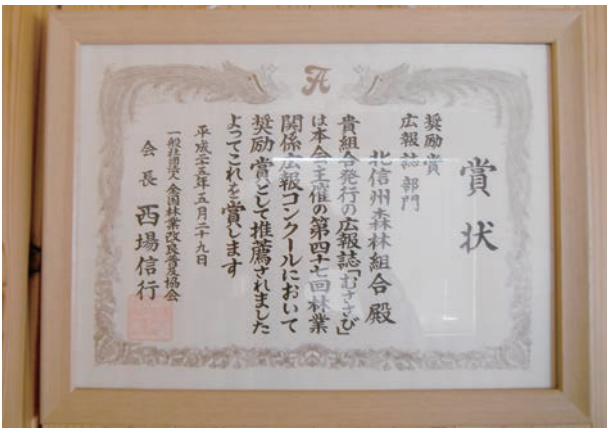 賞状
奨励賞
広報誌部門
北信州森林組合殿
貴組合発行の広報誌「むささび」
は本会主催の第四十七回林業
関係広報コンクールにおいて
奨励賞として推薦されました
よってこれを賞します
平成二五年五月二十九日
一般社団法人全国林業改良普及協会
会長 西場信行